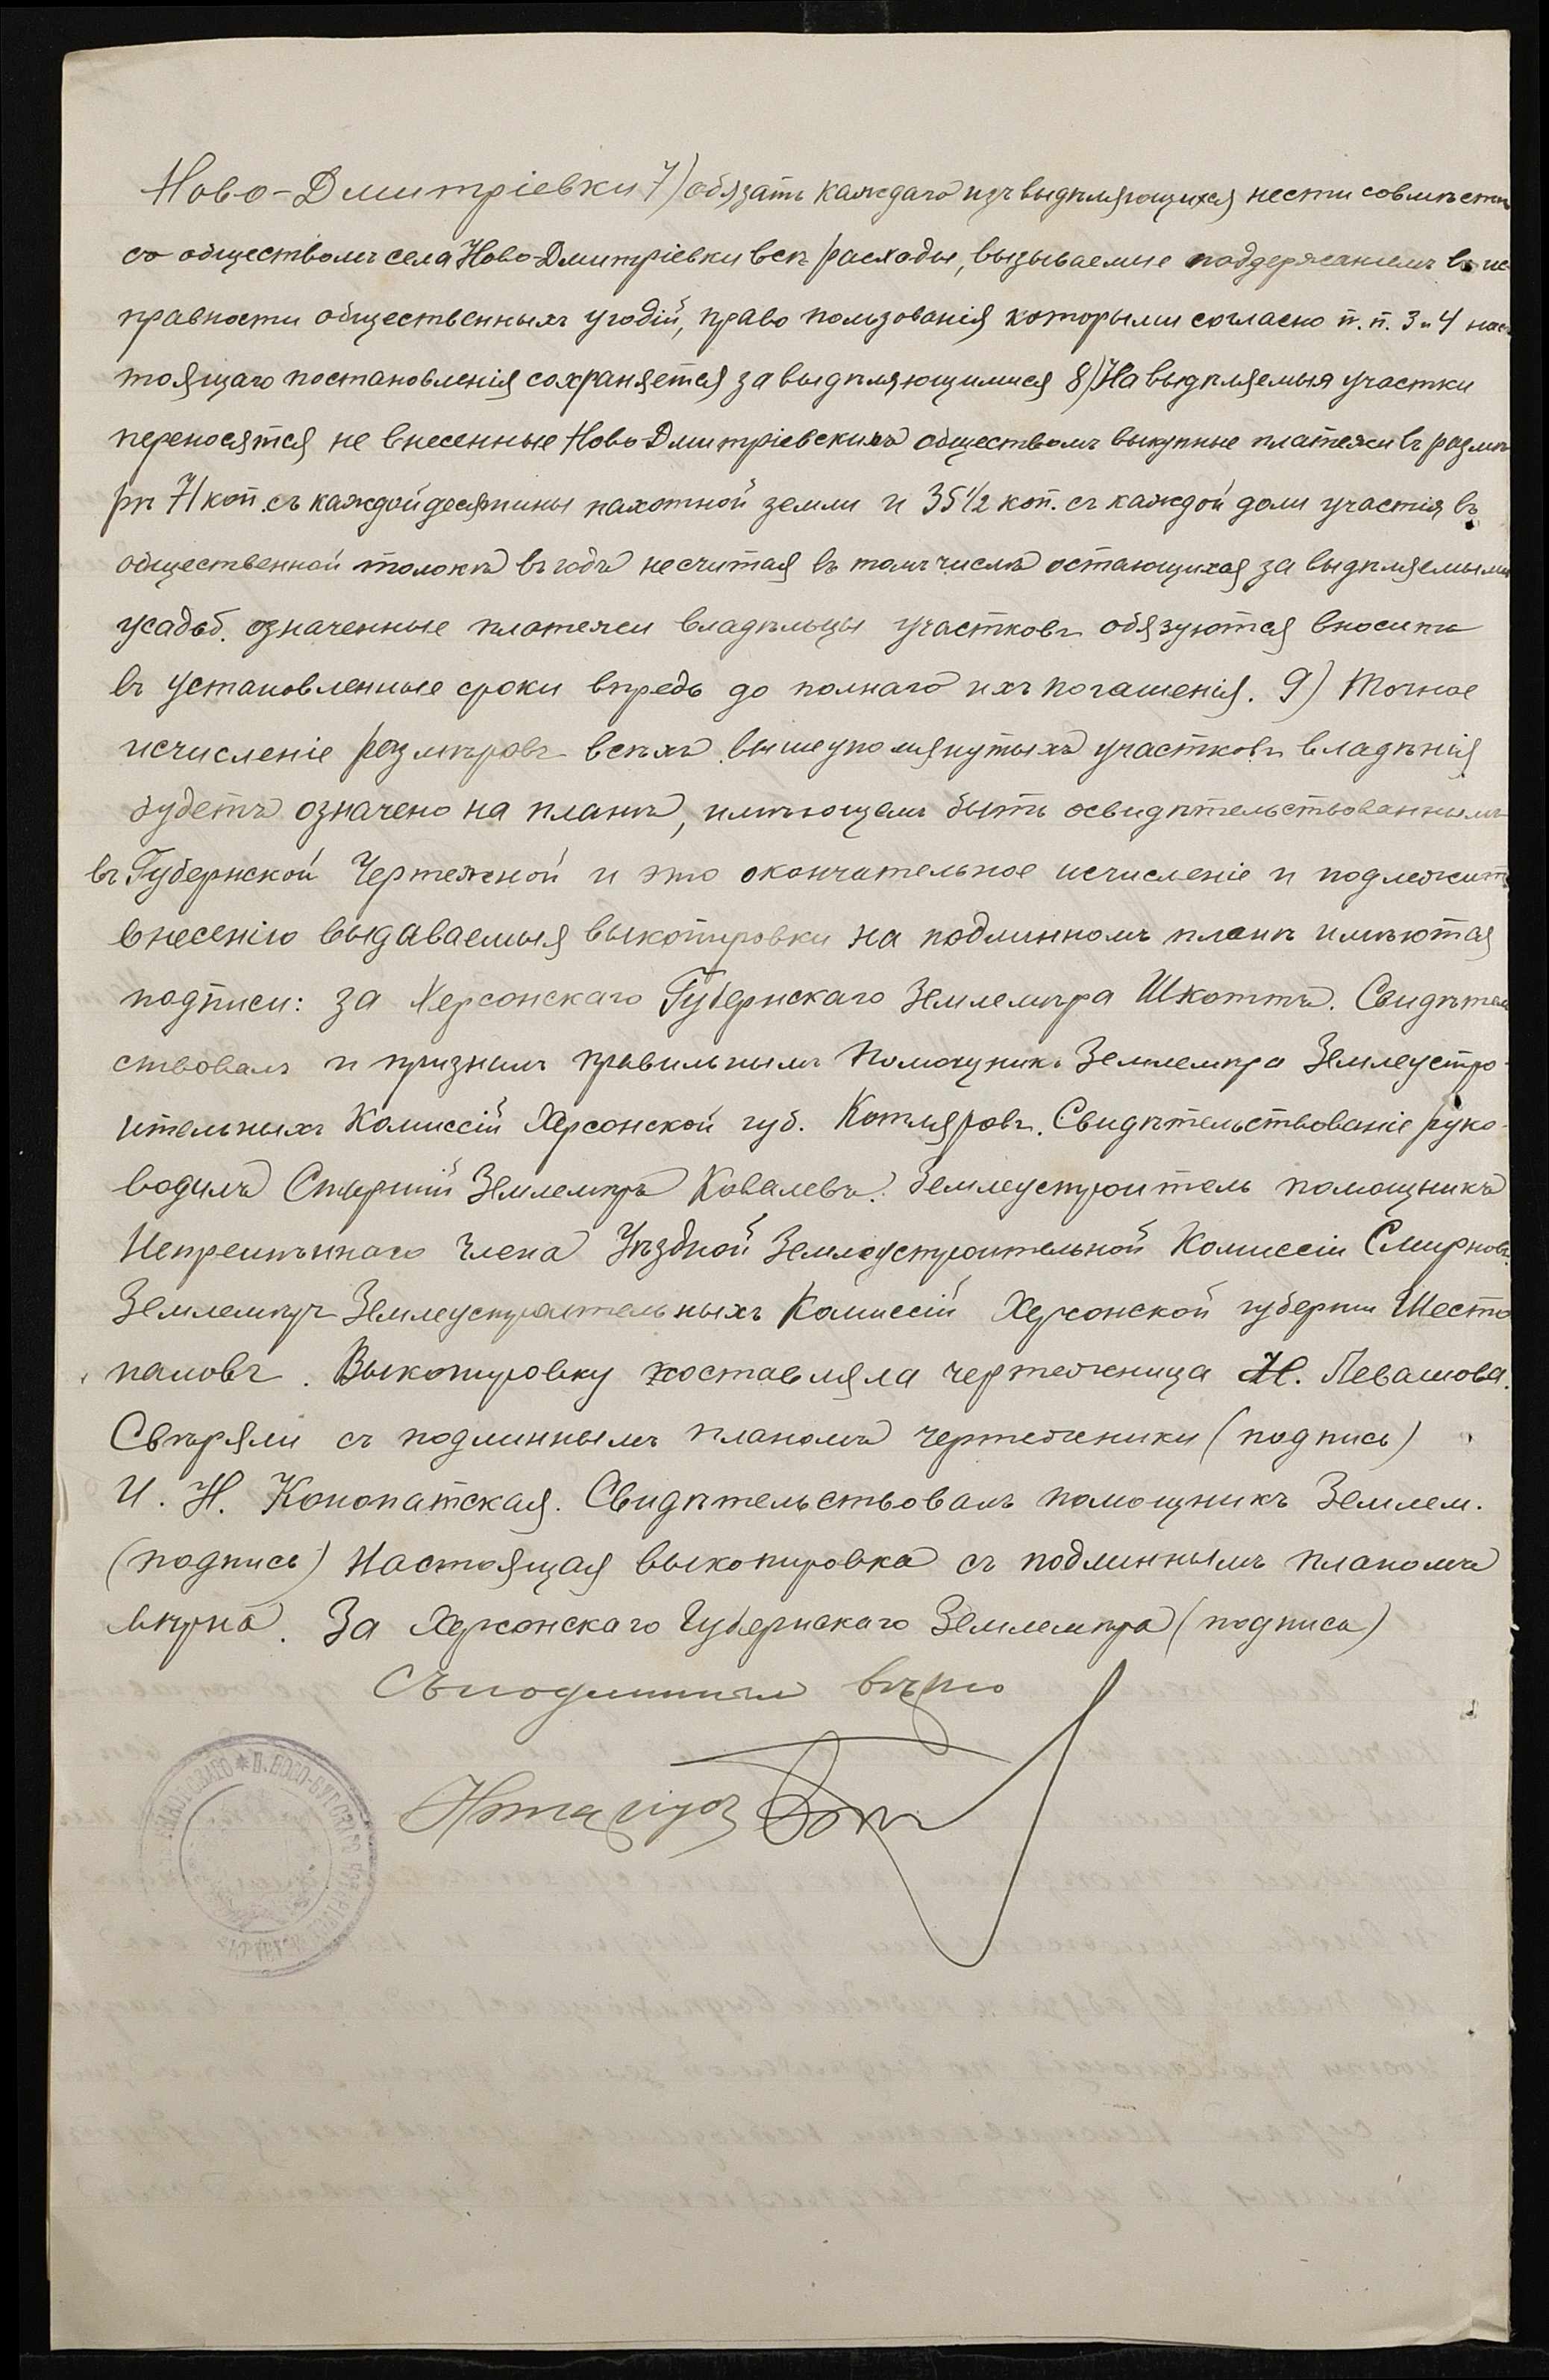 Ново-Дмитріевки 7) обязать каждаго изъ выдѣляющихся нести совмѣстно
со обществомъ села Ново-Дмитріевки всѣ расходы, вызываемые поддержаніемъ въ ис
правности общественныхъ угодій, право пользованія которыми согласно п.п. 3 и 4 нас
тоящаго постановленія сохраняется за выдѣляющимися 8) На выдѣляемыя участки
переносятся не внесенные Ново Дмитріевскимъ обществомъ выкупные платежи въ размѣ
рѣ 71 коп. съ каждой десятины пахотной земли и 35 1/2 коп. съ каждой доли участія въ
общественной толокѣ въ годъ несчитая въ томъ числѣ остающихся за выдѣляемыми
усадьб. означенные платежи владѣльцы участковъ обязуются вносить
въ установленные сроки впредь до полнаго ихъ погашенія. 9) Точное
исчисленіе размѣровъ всѣхъ вышеупомянутыхъ участковъ владѣнія
будетъ означено на планѣ, имѣющемъ быть освидѣтельствованнымъ
въ Губернской Чертежной и это окончательное исчисленіе и подлежитъ
внесенію выдаваемыя выкопировки на подлинномъ планѣ имѣются
подписи: за Херсонскаго Губернскаго Землемѣра Шкоттъ. Свидѣтель
ствовалъ и призналъ правильнымъ Помощникъ Землемѣра Землеустро-
ительныхъ Комиссій Херсонской губ. Котляровъ. Свидѣтельствованіе руко-
водилъ Старшій Землемѣръ Ковалевъ. Землеустроитель помощникъ
Непремѣннаго Члена Уѣздной Землеустроительной Комиссіи Смирновъ.
Землемѣръ Землеустроительныхъ Комиссій Херсонской губерніи Шесто
паловъ. Выкопировку составляла чертежница Н. Левашова.
Свѣряли съ подлиннымъ планомъ чертежники (подпись)
И. Н. Конопатская. Свидѣтельствовалъ помощникъ Землем.
(подпись) Настоящая выкопировка съ подлиннымъ планомъ
вѣрна. За Херсонскаго Губернскаго Землемѣра (подпись)
Съ подлиннымъ вѣрно
Нотаріусъ